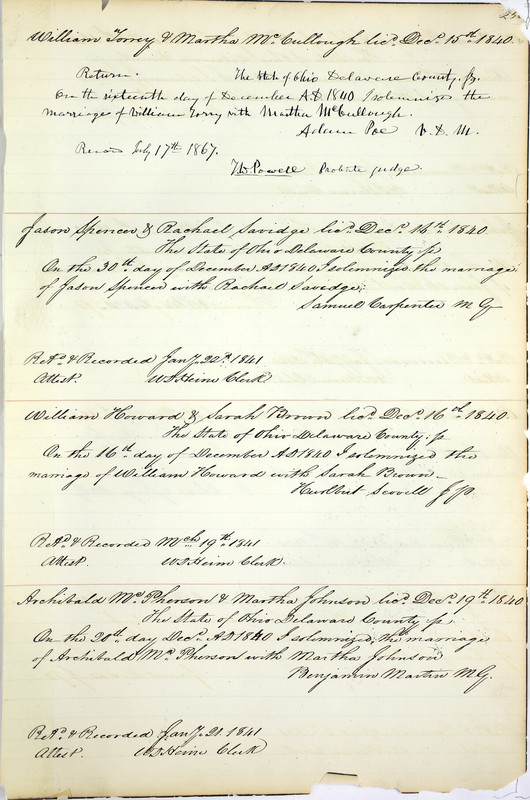 William Torrey & Martha McCullough lic'd Dec'r 15th 1840.
Return. The State of Ohio Delaware County, ss.
On the sixteenth day of December A.D. 1840 I solemnized the
marriage of William Torry with Martha McCullough.
Adam Poe V. D. M.
Record July 17th 1867.
T.W. Powell Probate Judge.
Jason Spencer & Rachael Savidge lic'd Dec'r 16th 1840.
The State of Ohio Delaware County ss
On the 30th day of December AD 1840 I solemnized the marriage
of Jason Spencer with Rachael Savidge;
Samuel Carpenter M G
Ret'd & Recorded Jan'y 22d 1841
Attest. W S Heim Clerk
William Howard & Sarah Brown lic'd Dec'r 16th 1840.
The State of Ohio Delaware County. ss
On the 16th day of December AD 1840 I solemnized the
marriage of William Howard with Sarah Brown
Hurlbut Scovell J P.
Ret'd & Recorded Mch 19th 1841
Attest. W S Heim Clerk.
Archibald McPherson & Martha Johnson lic'd Dec'r 19th 1840
The State of Ohio Delaware County ss
On the 20th day Dec'r AD 1840 I solemnized the marriage
of Archibald McPherson with Martha Johnson
Benjamin Martin M.G.
Ret'd & Recorded Jan'y 21. 1841
Attest. W S Heim Clerk